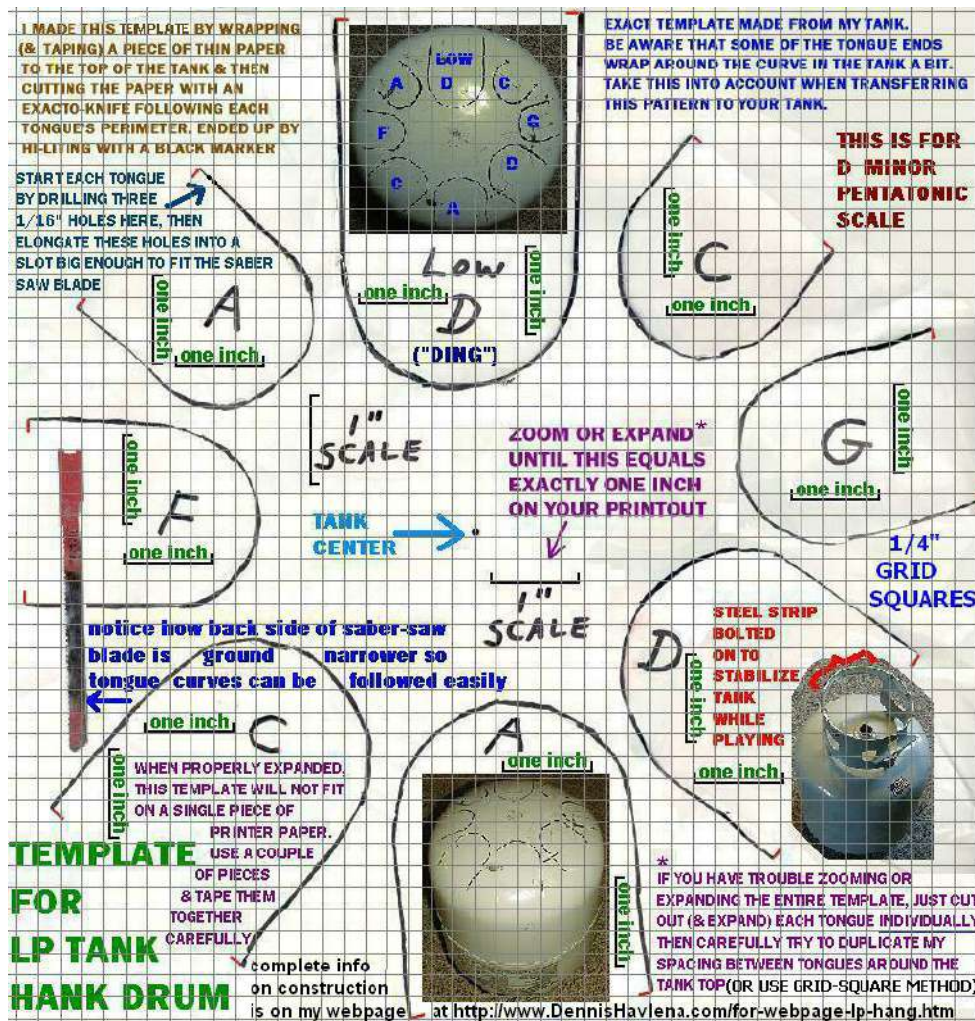 I MADE THIS TEMPLATE BY WRAPPING
(& TAPING) A PIECE OF THIN PAPER
TO THE TOP OF THE TANK & THEN
CUTTING THE PAPER WITH AN
EXACTO-KNIFE FOLLOWING EACH
TONGUE'S PERIMETER. ENDED UP BY
HI-LITING WITH A BLACK MARKER
START EACH TONGUE
BY DRILLING THREE
1/16" HOLES HERE, THEN
ELONGATE THESE HOLES INTO A
SLOT BIG ENOUGH TO FIT THE SABER
SAW BLADE
LOW
A D C
F G
C D
A
EXACT TEMPLATE MADE FROM MY TANK.
BE AWARE THAT SOME OF THE TONGUE ENDS
WRAP AROUND THE CURVE IN THE TANK A BIT.
TAKE THIS INTO ACCOUNT WHEN TRANSFERRING
THIS PATTERN TO YOUR TANK.
THIS IS FOR
D MINOR
PENTATONIC
SCALE
A
one inch
one inch
Low
D
one inch
one inch
("DING")
C
one inch
one inch
1"
SCALE
ZOOM OR EXPAND*
UNTIL THIS EQUALS
EXACTLY ONE INCH
ON YOUR PRINTOUT
G
one inch
one inch
F
one inch
one inch
TANK
CENTER
1"
SCALE
1/4"
GRID
SQUARES
notice how back side of saber-saw
blade is ground narrower so
tongue curves can be followed easily
D
one inch
one inch
STEEL STRIP
BOLTED
ON TO
STABILIZE
TANK
WHILE
PLAYING
C
one inch
one inch
WHEN PROPERLY EXPANDED,
THIS TEMPLATE WILL NOT FIT
ON A SINGLE PIECE OF
PRINTER PAPER.
USE A COUPLE
OF PIECES
& TAPE THEM
TOGETHER
CAREFULLY
A
one inch
one inch
TEMPLATE
FOR
LP TANK
HANK DRUM
*
IF YOU HAVE TROUBLE ZOOMING OR
EXPANDING THE ENTIRE TEMPLATE, JUST CUT
OUT (& EXPAND) EACH TONGUE INDIVIDUALLY
THEN CAREFULLY TRY TO DUPLICATE MY
SPACING BETWEEN TONGUES AROUND THE
TANK TOP(OR USE GRID-SQUARE METHOD)
complete info
on construction
is on my webpage at http://www.DennisHavlena.com/for-webpage-lp-hang.htm